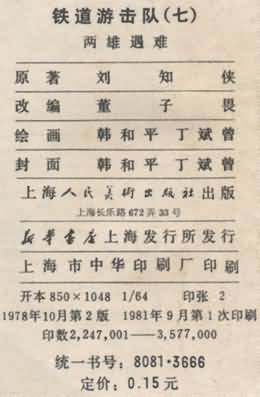 铁道游击队(七)
两雄遇难
原著 刘知侠
改编 董子畏
绘画 韩和平 丁斌曾
封面 韩和平 丁斌曾
上海人民美術出版社出版
上海长乐路672弄33号
新华书店上海发行所发行
上海市中华印刷厂印刷
开本850×1048 1/64 印张 2
1978年10月第2版 1981年9月第1次印刷
印数2,247,001—3,577,000
统一书号: 8081·3666
定价: 0.15元